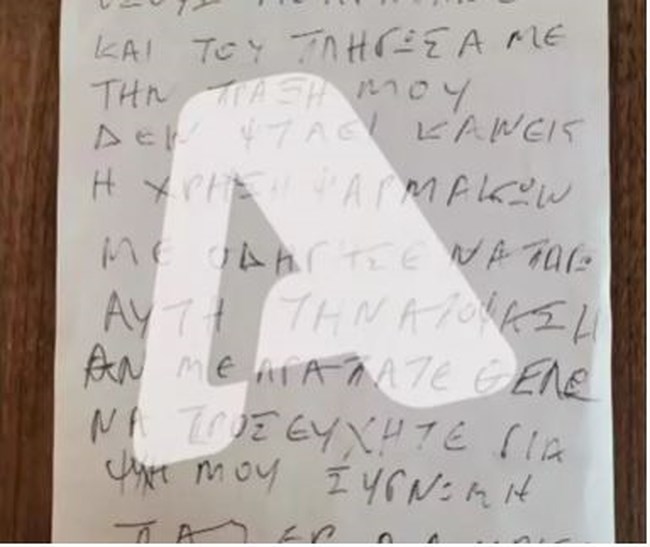 ΚΑΙ ΤΟΥ ΠΛΗΓΩΣΑ ΜΕ
ΤΗΝ ΠΡΑΞΗ ΜΟΥ
ΔΕΝ ΨΤΑΕΙ ΚΑΝΕΙΣ
Η ΧΡΗΣΗ ΨΑΡΜΑΚΩΝ
ΜΕ ΟΔΗΓΗΣΕ ΝΑ ΠΑΡΩ
ΑΥΤΗ ΤΗΝ ΑΠΟΨΑΣΗ
ΑΝ ΜΕ ΑΓΑΠΑΤΕ ΘΕΛΩ
ΝΑ ΠΡΟΣΕΥΧΗΤΕ ΓΙΑ
ΜΟΥ ΣΥΓΝΩΜΗ